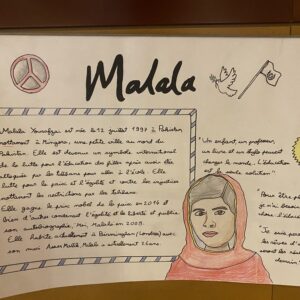 Malala
Malala Yousafzai est née le 12 juillet 1997 à Pakistan
nottament à Mingora, une petite ville au nord du
Pakistan. Elle est devenue un symbole international
de la lutte pour l'éducation des filles après avoir été
attaquée par les talibans pour aller à l'école. Elle
lutte pour la paix et l'égalité et contre les injustices
nottament les restrictions par les talibans.
Elle gagne le prix nobel de la paix en 2014 et
bien d'autres concernant l'égalité et la liberté et publie
son autobiographie, Moi, Malala en 2013.
Elle habite actuellement à Birmingham (Londres) avec
son mari Asser Malik. Malala a actuellement 26 ans.
"Un enfant, un professeur,
un livre et un stylo peuvent
changer le monde. L'éducation
est la seule solution"
"Pour être
je n'ai besoin
chose: l'édu
"Je suis
les rêves d'
sont les
demain"